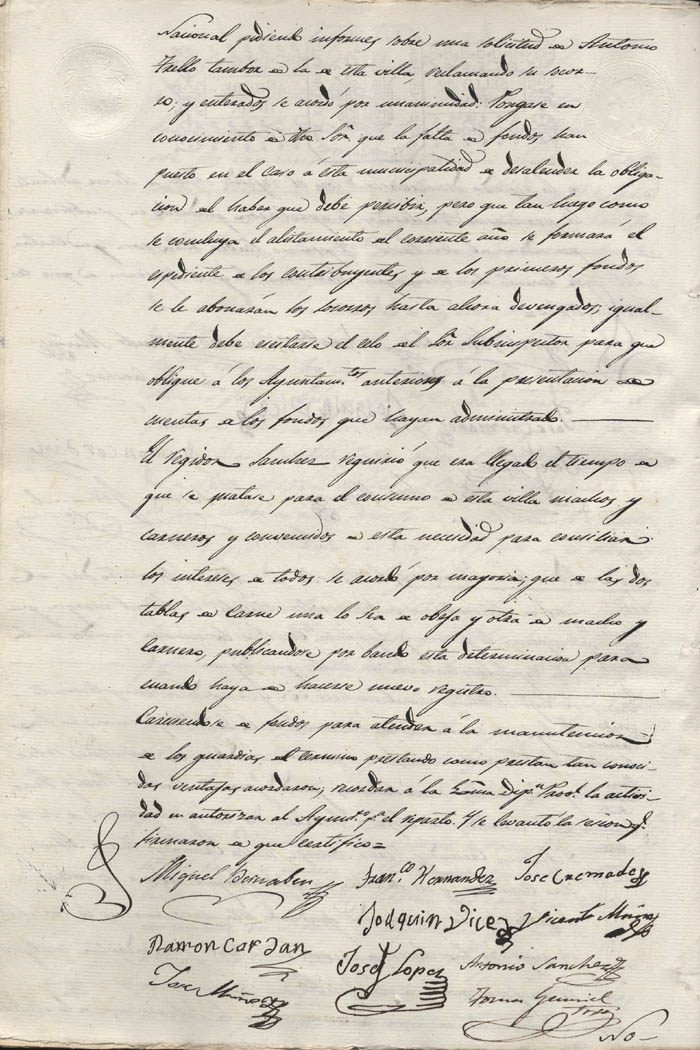 Nacional pidiendo informes sobre una solicitud de Antonio
Trello tambor de la de esta villa, reclamando su socor-
ro; y enterados se acordó por unanimidad: Pongase en
conocimiento de dho Sor. que la falta de fondos han
puesto en el caso á esta municipalidad de desatender la obliga-
cion del haber que debe percibir, pero que tan luego como
se concluya el alistamiento del corriente año se formará el
espediente de los contribuyentes y de los primeros fondos
se le abonarán los socorros hasta ahora devengados; igual-
mente debe esitarse el celo del Sor. Subinspector para que
oblique á los Ayuntam.tos anteriores á la presentacion de
cuentas de los fondos que hayan administrado.
El regidor Sanchez requirió que era llegado el tiempo de
que se matase para el consumo de esta villa machos y
carneros y convenidos de esta necesidad para consiliar
los intereses de todos se acordó por mayoria; que de las dos
tablas de carne una lo sea de obeja y otra de macho y
carnero, publicandose por bando esta determinacion para
cuando haya de hacerse nuevo registro.
Careciendose de fondos para atender á la manutencion
de los guardias del termino prestando como prestan tan conoci-
das ventajas acordaron, recordar á la Exma Dip.n Prov.l la activi-
dad en autorizar al Ayunt.o p.a el reparto. Y se levanto la sesion q.e
firmaron de que certifico=
Miguel Bernabeu Fran.co Hernandez Jose Cremades
Joaquin Vicedo Vicente Muñoz
Ramon Cerdan
Jose Lopez Antonio Sanchez
Jose Muñoz
Tomas
No-